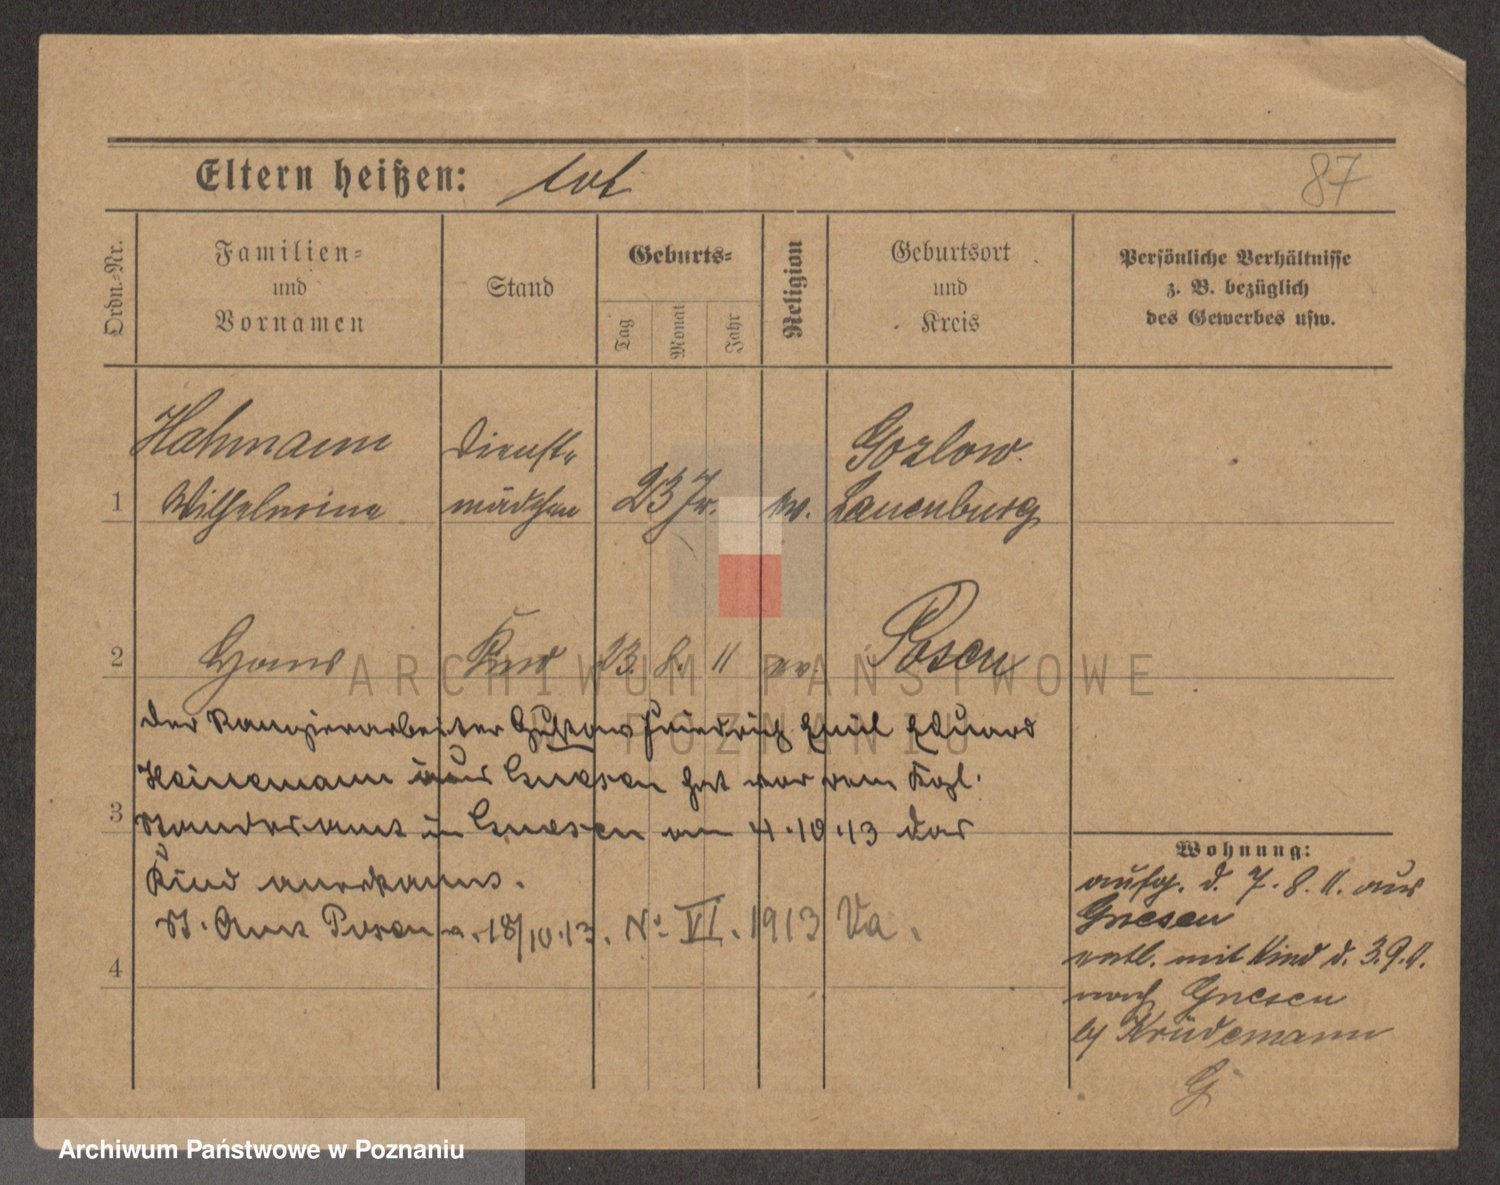 Eltern heißen: tot
87
Ordn.-Nr.
Familien-
und
Vornamen
Stand
Geburts-
Tag
Monat
Jahr
Religion
Geburtsort
und
Kreis
Persönliche Verhältnisse
z. B. bezüglich
des Gewerbes usw.
Hahmann Dienst- Gozlow
1 Wilhelmine mädchen 23 Jr. ev. Lauenburg
2 Hans Kind 23. 8. 11 ev. Posen
ARCHIWUM PAŃSTWOWE
POZNANIU
Der Rangierarbeiter Gustav Friedrich Emil Eduard
Heinemann aus Gnesen hat vor dem Kgl.
3 Standesamt in Gnesen am 4.10.13 das
Kind anerkannt.
St. Amt Posen a. 18/10.13. No VI. 1913 Va.
4
Wohnung:
aufg. d. 7. 8. 11. aus
Gnesen
entl. mit Kind d. 3.9.11.
nach Gnesen
b/ Krüdemann
Archiwum Państwowe w Poznaniu